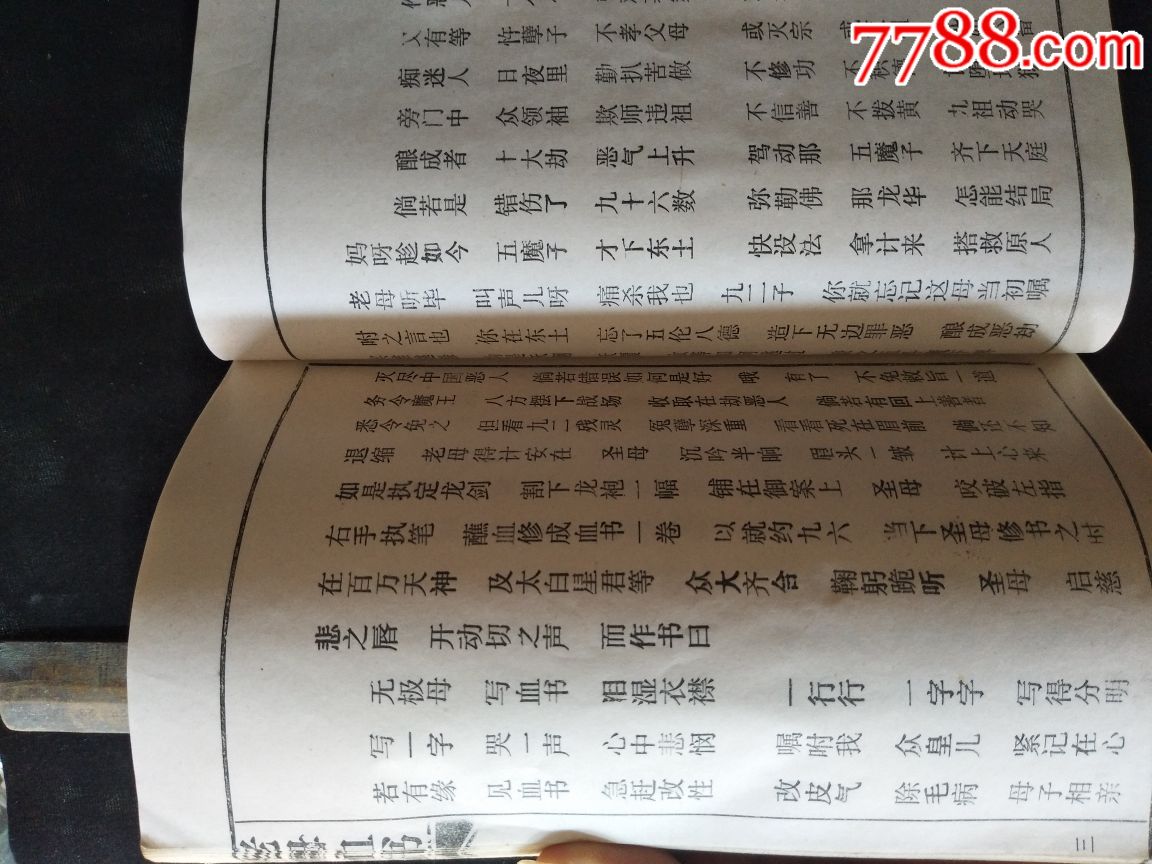 又有等 忤孽子 不孝父母 或灭宗
痴迷人 日夜里 勤扒苦做 不修功
旁门中 众领袖 欺师违祖 不信善 不拨黄 九祖动哭
酿成者 十大劫 恶气上升 驾动那 五魔子 齐下天庭
倘若是 错伤了 九十六数 弥勒佛 那龙华 怎能结局
妈呀趁如今 五魔子 才下东土 快设法 拿计来 搭救原人
老母听毕 叫声儿呀 痛杀我也 九二子 你就忘记这母当初嘱
咐之言也 你在东土 忘了五伦八德 造下无边罪恶 酿成恶劫
灭尽中国恶人 倘若错误如何是好 哦 有了 不免敕旨一道
务令魔王 八方摆下战场 收取在劫恶人 倘若有回上善者
悉令免之 但看九二残灵 冤孽深重 看看死在眉前 倘还不知
退缩 老母得计安在 圣母 沉吟半晌 眉头一皱 计上心来
如是执定龙剑 割下龙袍一幅 铺在御案上 圣母 咬破左指
右手执笔 蘸血修成血书一卷 以就约九六 当下圣母修书之时
在百万天神 及太白星君等 众大齐合 鞠躬跪听 圣母 启慈
悲之唇 开动切之声 而作书曰
无极母 写血书 泪湿衣襟 一行行 一字字 写得分明
写一字 哭一声 心中悲悯 嘱咐我 众皇儿 紧记在心
若有缘 见血书 急赶改性 改皮气 除毛病 母子相亲
三
7788.com